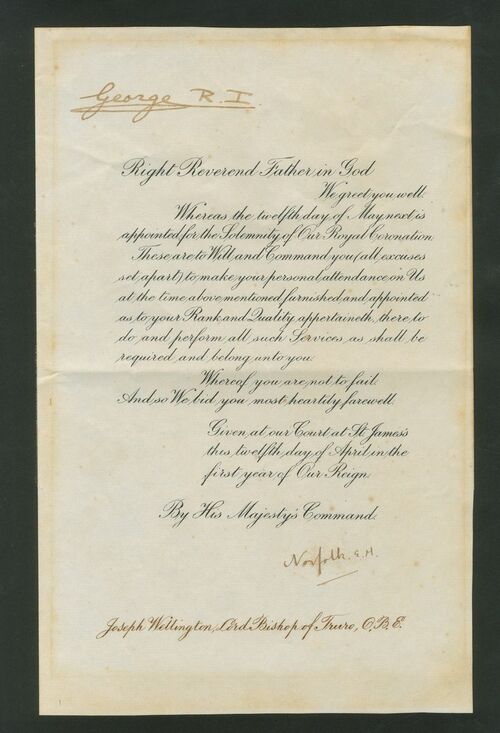 George R.I.
Right Reverend Father in God
We greet you well.
Whereas the twelfth day of May next is
appointed for the Solemnity of Our Royal Coronation
These are to Will and Command you (all excuses
set apart) to make your personal attendance on Us
at the time above mentioned furnished and appointed
as to your Rank and Quality appertaineth, there to
do and perform all such Services as shall be
required and belong unto you.
Whereof you are not to fail.
And so We bid you most heartily farewell.
Given at our Court at St. James's
this twelfth day of April in the
first year of Our Reign.
By His Majesty's Command.
Norfolk. E.M.
Joseph Wellington, Lord Bishop of Truro, O.B.E.